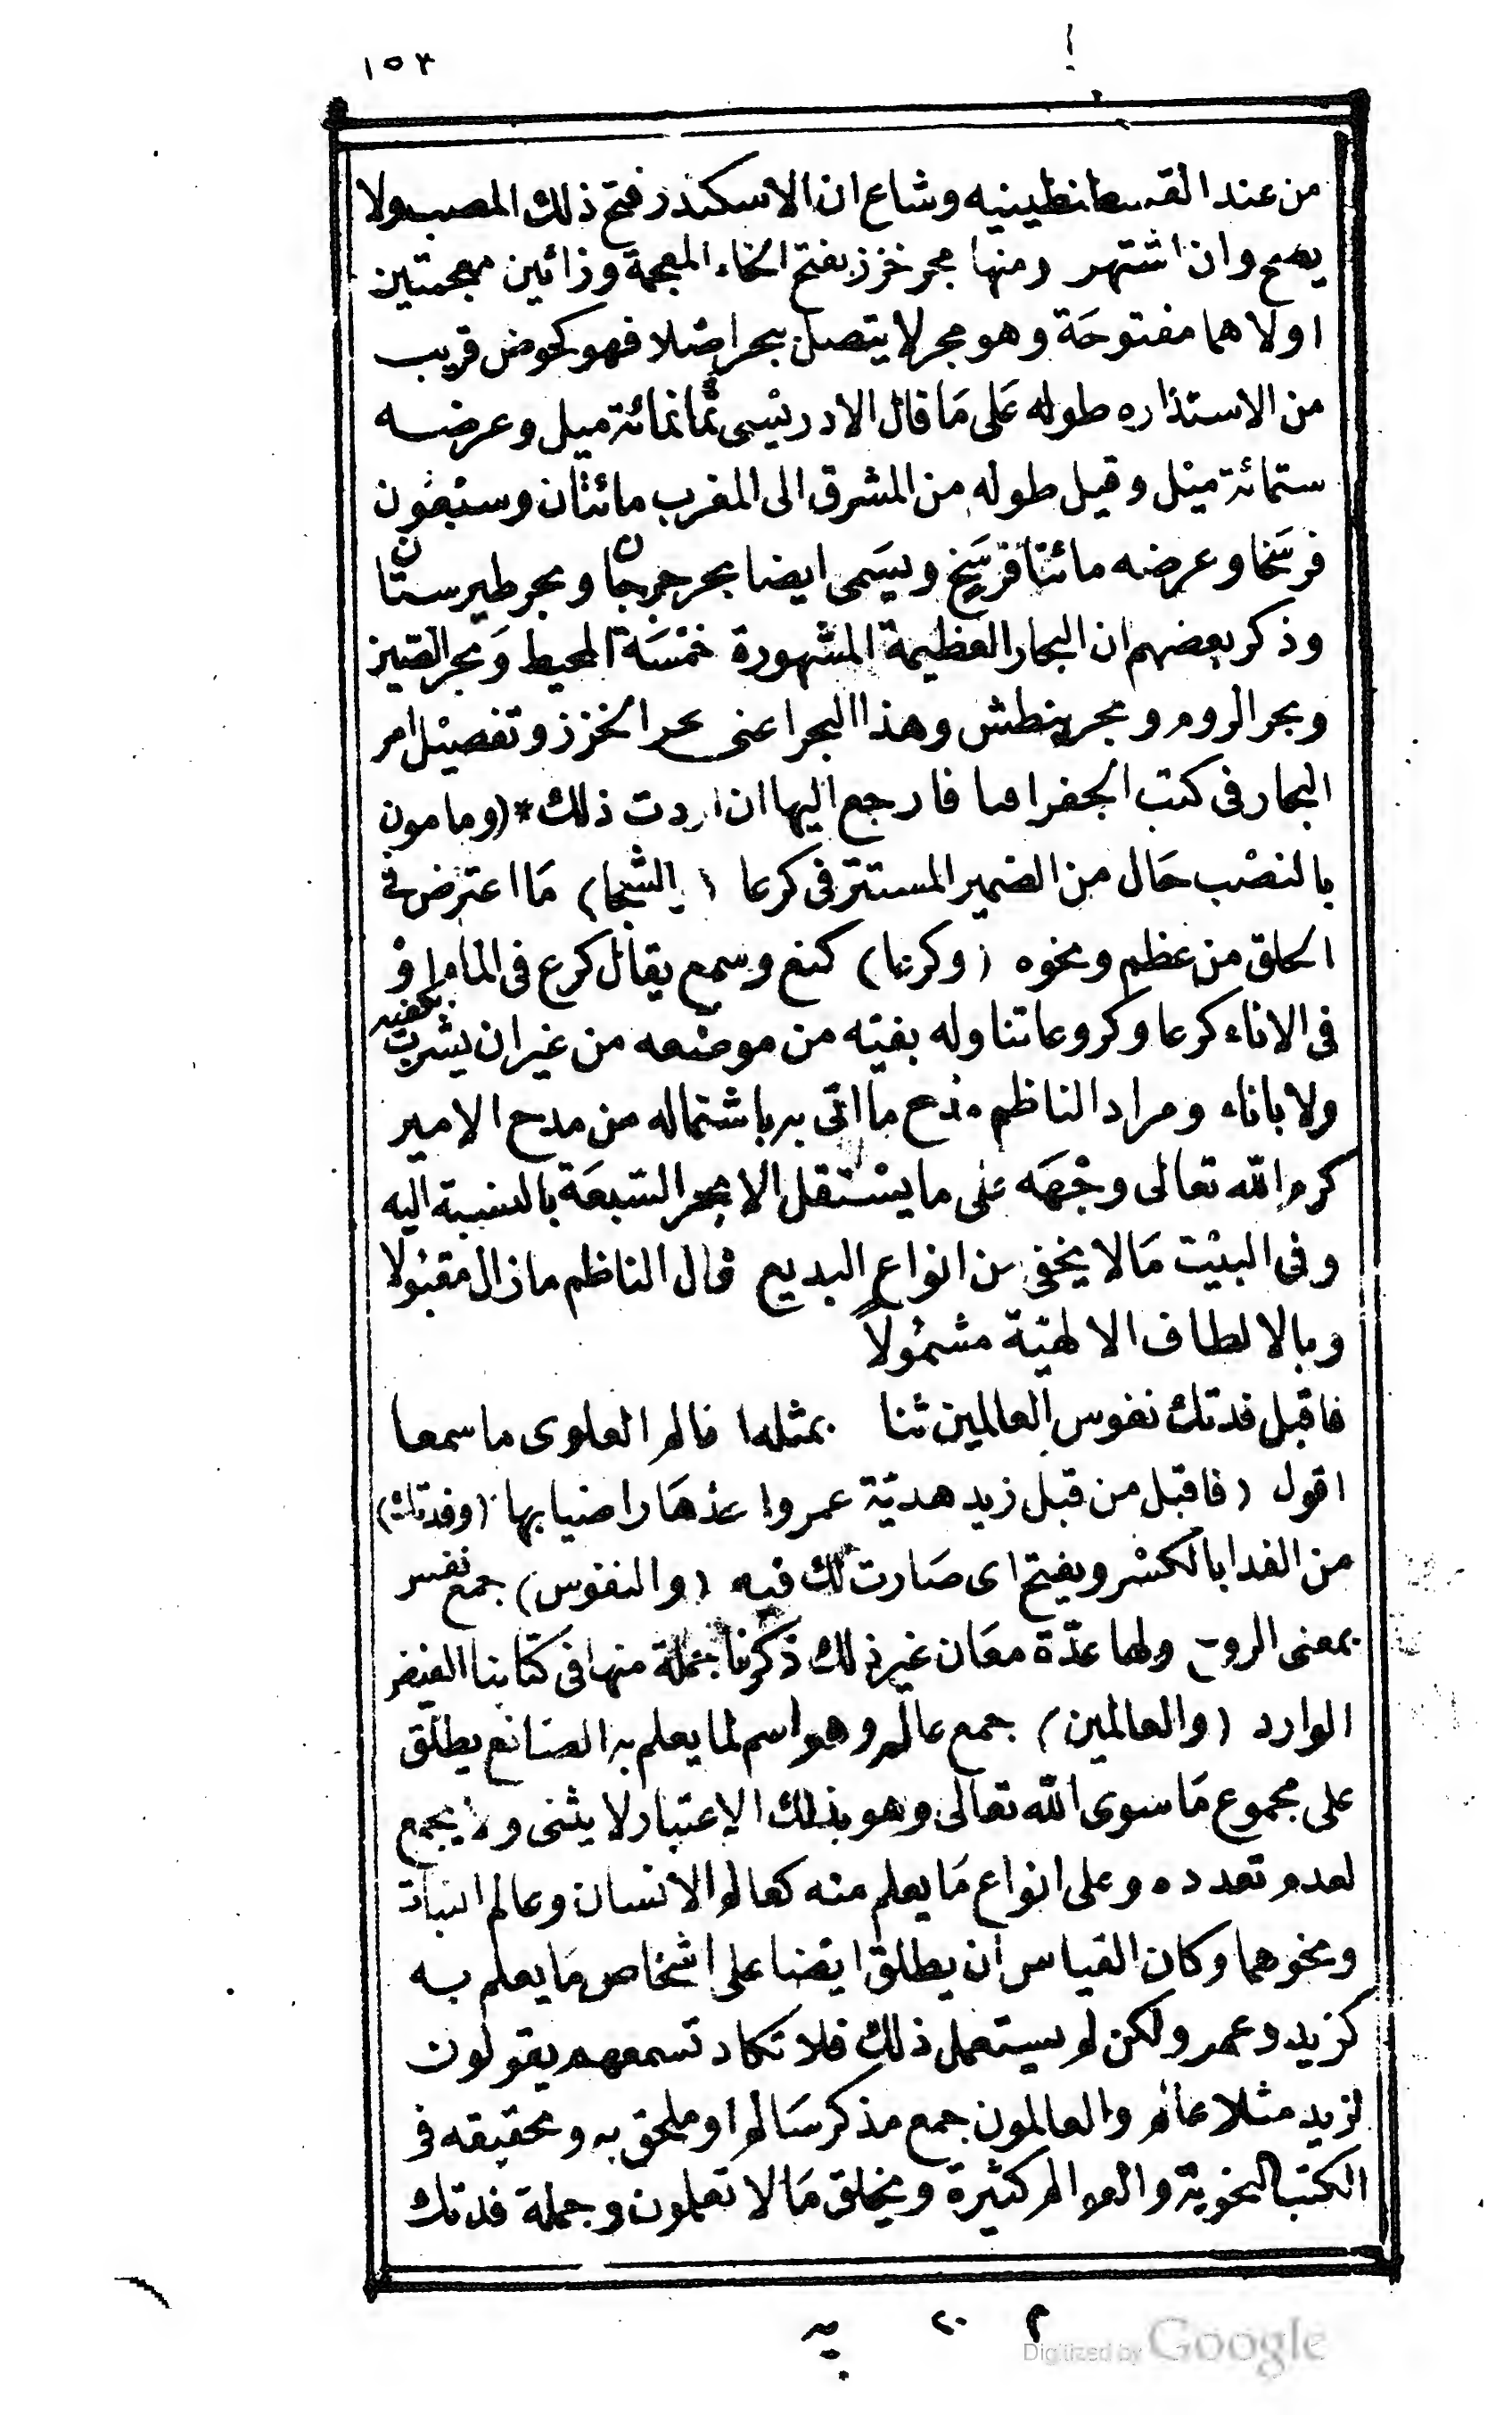 ١٥٣
من عند القسطنطينيه وشاع ان الاسكندر فتح ذلك المصب ولا
يصح وان اشتهر ومنها بحر خزز بفتح الخاء المعجمة وزائين معجمتين
اولاهما مفتوحة وهو بحر لا يتصل ببحر اصلا فهو كحوض قريب
من الاستداره طوله على ما قال الادريسى ثمانمائة ميل وعرضه
ستمائة ميل وقيل طوله من المشرق الى المغرب مائتان وسبعون
فرسخا وعرضه مائتا فرسخ ويسمى ايضا بحر جرجان وبحر طبرستان
وذكر بعضهم ان البحار العظيمة المشهورة خمسة المحيط وبحر الصين
وبحر الروم وبحر بنطش وهذا البحر اعنى بحر الخزز وتفصيل امر
البحار فى كتب الجغرافيا فارجع اليها ان اردت ذلك * (ومامون
بالنصب حال من الضمير المستتر فى كرعا (والشجا) ما اعترض فى
الحلق من عظم ونحوه (وكرعا) كمنع وسمع يقال كرع فى الماء او
فى الاناء كرعا وكروعا تناوله بفيه من موضعه من غير ان يشرب بكفيه
ولا باناء ومراد الناظم مدح ما اتى به باشتماله من مدح الامير
كرم الله تعالى وجهه على ما يستقل الابحر السبعة بالنسبة اليه
وفى البيت ما لا يخفى من انواع البديع قال الناظم ما زال مقبولا
وبالالطاف الالهية مشمولا
فاقبل فدتك نفوس العالمين ثنا بمثله العالم العلوى ما سمعا
اقول (فاقبل من قبل زيد هدية عمرو اخذها راضيا بها (وفدتك)
من الفدا بالكسر ويفتح اى صارت لك فيه (والنفوس) جمع نفس
بمعنى الروح ولها عدة معان غير ذلك ذكرنا جملة منها فى كتابنا الفيض
الوارد (والعالمين) جمع عالم وهو اسم لما يعلم به الصانع يطلق
على مجموع ما سوى الله تعالى وهو بذلك الاعتبار لا يثنى ولا يجمع
لعدم تعدده وعلى انواع ما يعلم منه كعالم الانسان وعالم النبات
ونحوهما وكان القياس ان يطلق ايضا على اشخاص ما يعلم به
كزيد وعمر ولكن لم يستعمل ذلك فلا تكاد تسمعهم يقولون
لزيد مثلا عالم والعالمون جمع مذكر سالم او ملحق به وتحقيقه فى
الكتب النحوية والعوالم كثيرة ويخلق ما لا تعلمون وجملة فدتك
م ٢٠ يه
Digitized by Google